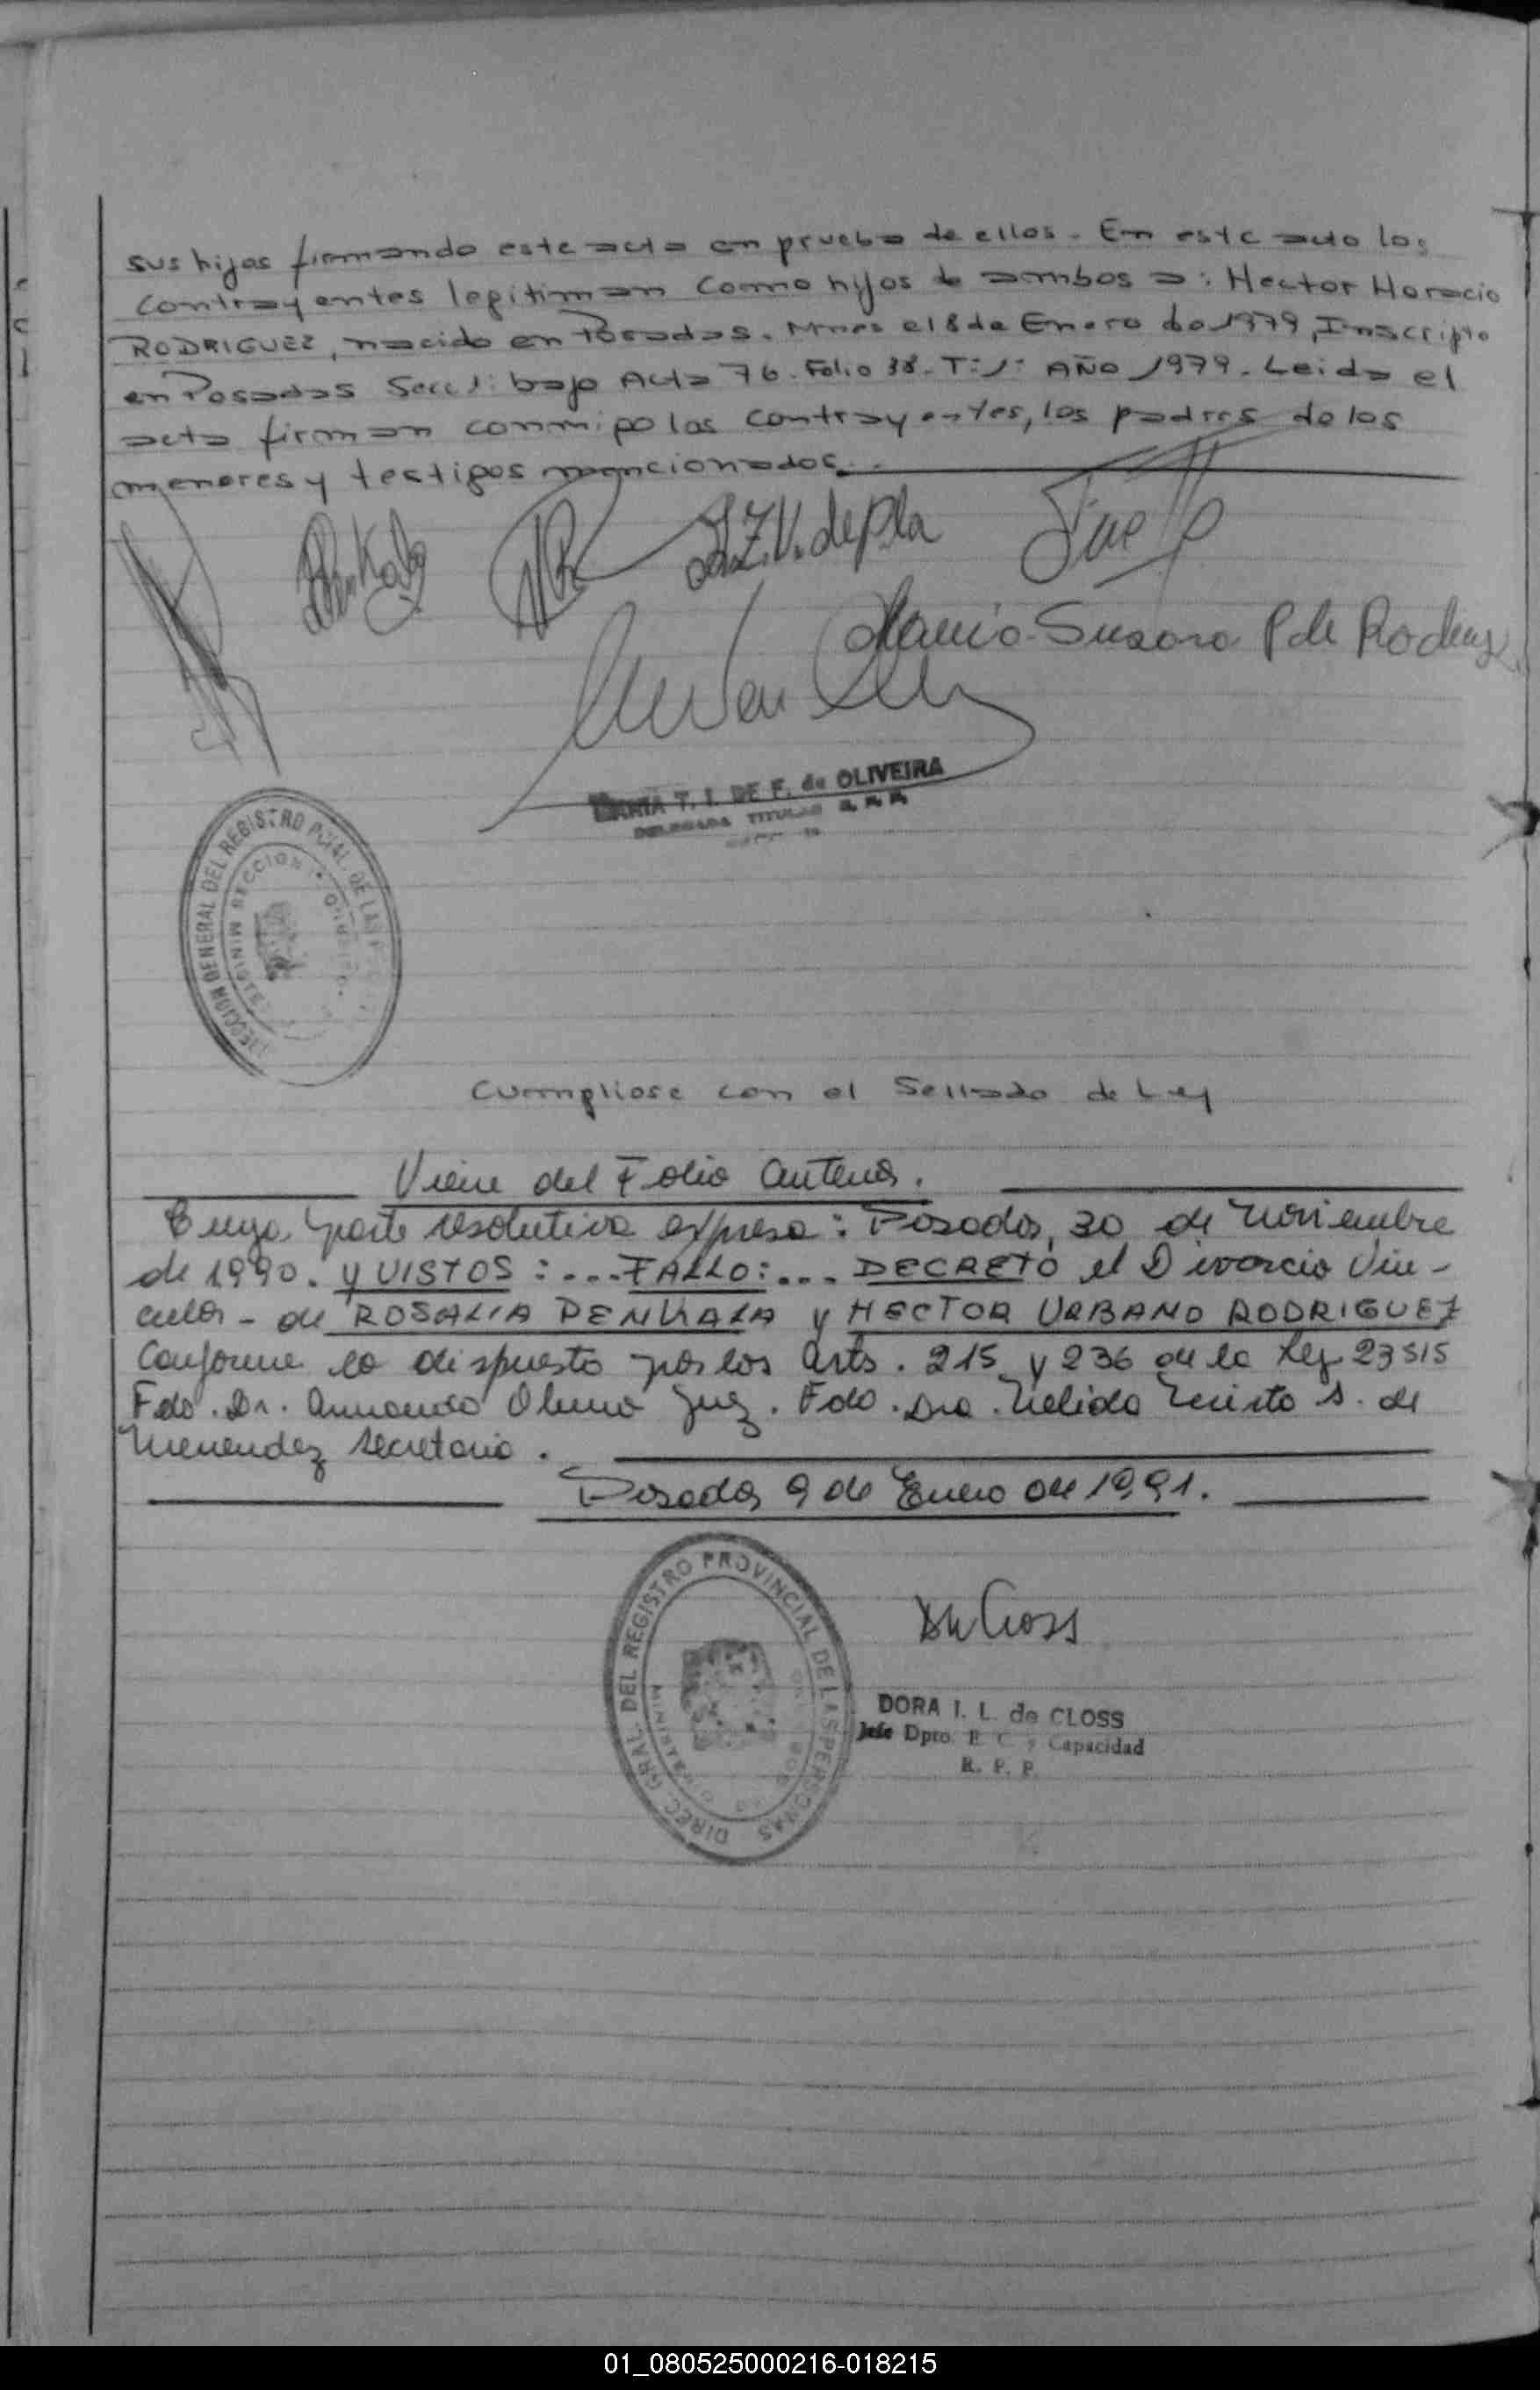 sus hijas firmando este acto en prueba de ellos. En este acto los
contrayentes legitiman como hijos de ambos a: Hector Horacio
RODRIGUEZ, nacido en Posadas. Mnes el 8 de Enero de 1979, Inscripto
en Posadas Secc 1: bajo Acta 76. Folio 38. T: 1: AÑO 1979. Leida el
acta firman conmigo los contrayentes, los padres de los
menores y testigos mencionados.
de Pla
Maria Susana P de Rodriguez
MARIA T. I. DE F. de OLIVEIRA
DELEGADA TITULAR R. P. P.
DIRECCION GENERAL DEL REGISTRO PCIAL. DE LAS
MINISTE SECCION 1ª
Cumpliose con el Sellado de Ley
Viene del Folio anterior.
Cuya parte resolutiva expresa: Posadas, 30 de Noviembre
de 1990. Y VISTOS: ... FALLO: ... DECRETO el Divorcio Vin-
cular - de ROSALIA PENKALA y HECTOR URBANO RODRIGUEZ
Conforme lo dispuesto por los arts. 215 y 236 de la Ley 23515
Fdo. Dr. Armando Juez. Fdo. Dra. Nelida S. de
Menendez Secretaria.
Posadas 9 de Enero de 1991.
DIREC. GRAL. DEL REGISTRO PROVINCIAL DE LAS PERSONAS
MINISTERIO DE GOBIERNO
DORA I. L. de CLOSS
Jefe Dpto. E. C. y Capacidad
R. P. P.
01_080525000216-018215